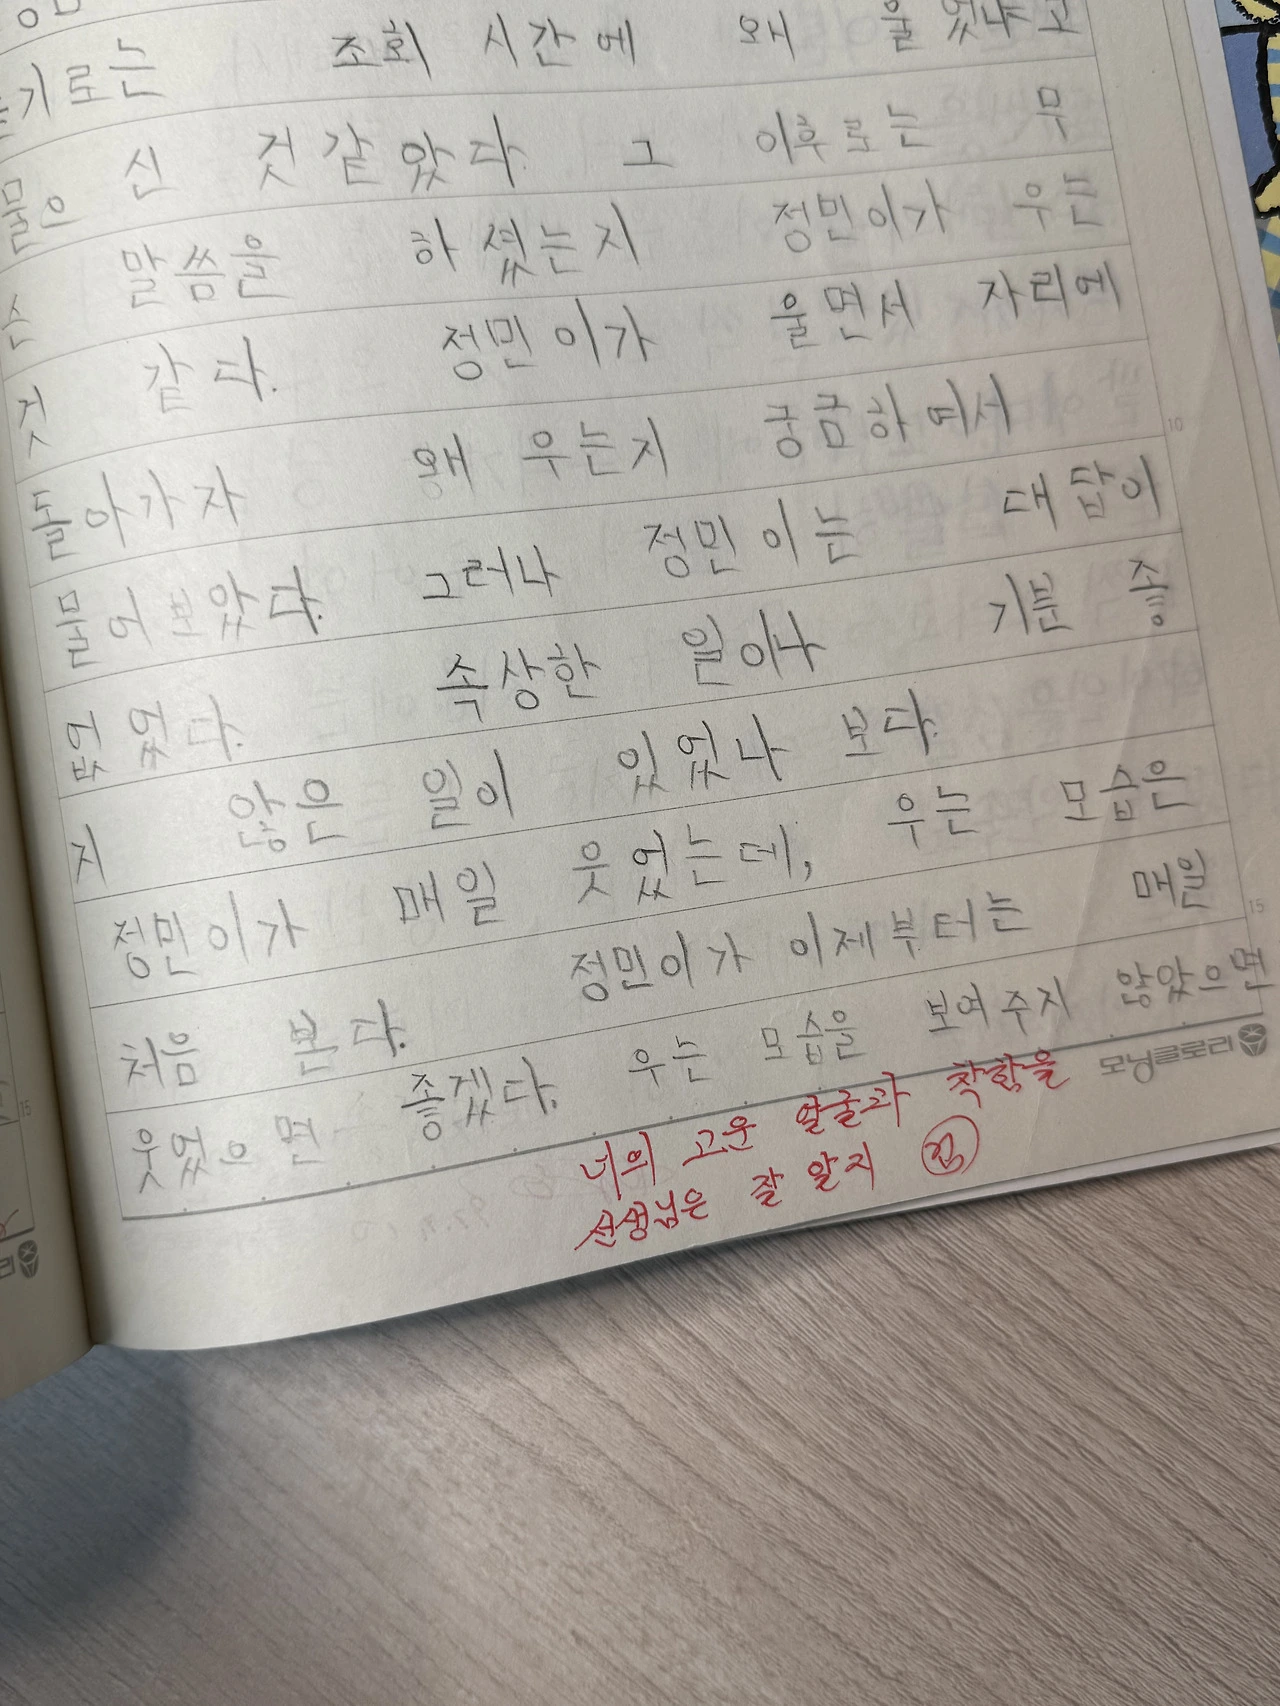 기로는 조회 시간에 왜 울었냐고
물으신 것 같았다. 그 이후로는 무
슨 말씀을 하셨는지 정민이가 우는
것 같다. 정민이가 울면서 자리에
돌아가자 왜 우는지 궁금하여서
물어보았다. 그러나 정민이는 대답이
없었다. 속상한 일이나 기분 좋
지 않은 일이 있었나 보다.
정민이가 매일 웃었는데, 우는 모습은
처음 본다. 정민이가 이제부터는 매일
웃었으면 좋겠다. 우는 모습을 보여주지 않았으면
모닝글로리
너의 고운 얼굴과 착함을
선생님은 잘 알지 검
10
15
15